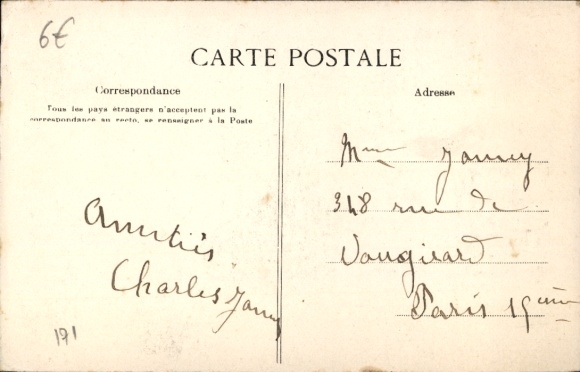 6€
CARTE POSTALE
Correspondance
Tous les pays étrangers n'acceptent pas la
correspondance au recto, se renseigner à la Poste
Adresse
Mme
348 rue de
Vaugirard
Paris 15ème
Amitiés
Charles
191